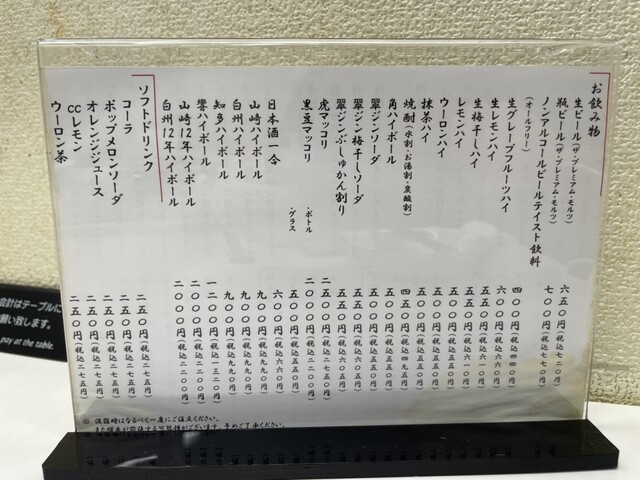 お飲み物
生ビール(ザ・プレミアム・モルツ) 六五〇円(税込七二〇円)
瓶ビール(ザ・プレミアム・モルツ) 七〇〇円(税込七七〇円)
ノンアルコールビールテイスト飲料
(オールフリー) 四〇〇円(税込四四〇円)
生グレープフルーツハイ 六〇〇円(税込六六〇円)
生レモンハイ
生梅干しハイ
レモンハイ
ウーロンハイ
抹茶ハイ
焼酎(水割・お湯割・炭酸割) 四五〇円(税込四九五円)
角ハイボール 五五〇円(税込六〇五円)
翠ジンソーダ 五五〇円(税込六〇五円)
翠ジン梅干しソーダ 五五〇円(税込六〇五円)
翠ジンぶしゅかん割り 五五〇円(税込六〇五円)
虎マッコリ 二五〇〇円(税込二七五〇円)
黒豆マッコリ ・ボトル 二〇〇〇円(税込二二〇〇円)
・グラス 五五〇円(税込六〇五円)
日本酒一合 六〇〇円(税込六六〇円)
山崎ハイボール 九〇〇円(税込九九〇円)
白州ハイボール 九〇〇円(税込九九〇円)
知多ハイボール 九〇〇円(税込九九〇円)
響ハイボール 一二〇〇円(税込一三二〇円)
山崎12年ハイボール 二〇〇〇円(税込二二〇〇円)
白州12年ハイボール 二〇〇〇円(税込二二〇〇円)
ソフトドリンク
コーラ 二五〇円(税込二七五円)
ポップメロンソーダ 二五〇円(税込二七五円)
オレンジジュース 二五〇円(税込二七五円)
CCレモン 二五〇円(税込二七五円)
ウーロン茶 二五〇円(税込二七五円)
※ 混雑時はなるべく一度にご注文ください。
会計はテーブルに
願い致します。
pay at the table.